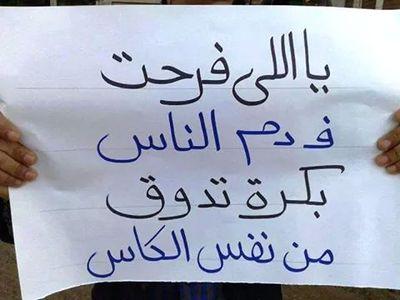 يا اللى فرحت
ف دم الناس
بكرة تدوق
من نفس الكاس